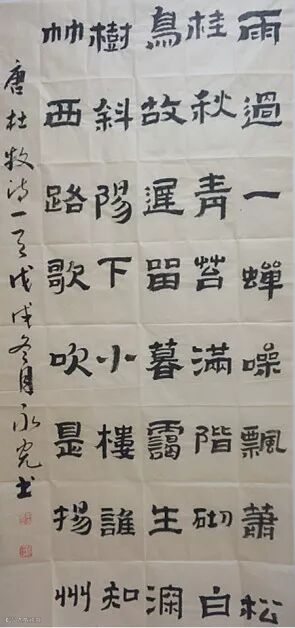 雨過一蟬噪飄蕭松
桂秋青苔滿階砌白
鳥故遲留暮靄生深
樹斜陽下小樓誰知
竹西路歌吹是揚州
唐杜牧诗一首戊戌冬月永书